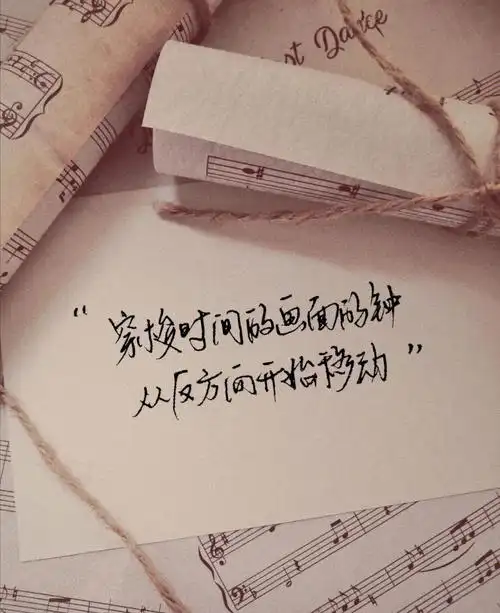 st Dance
“穿梭时间的画面的钟
从反方向开始移动”